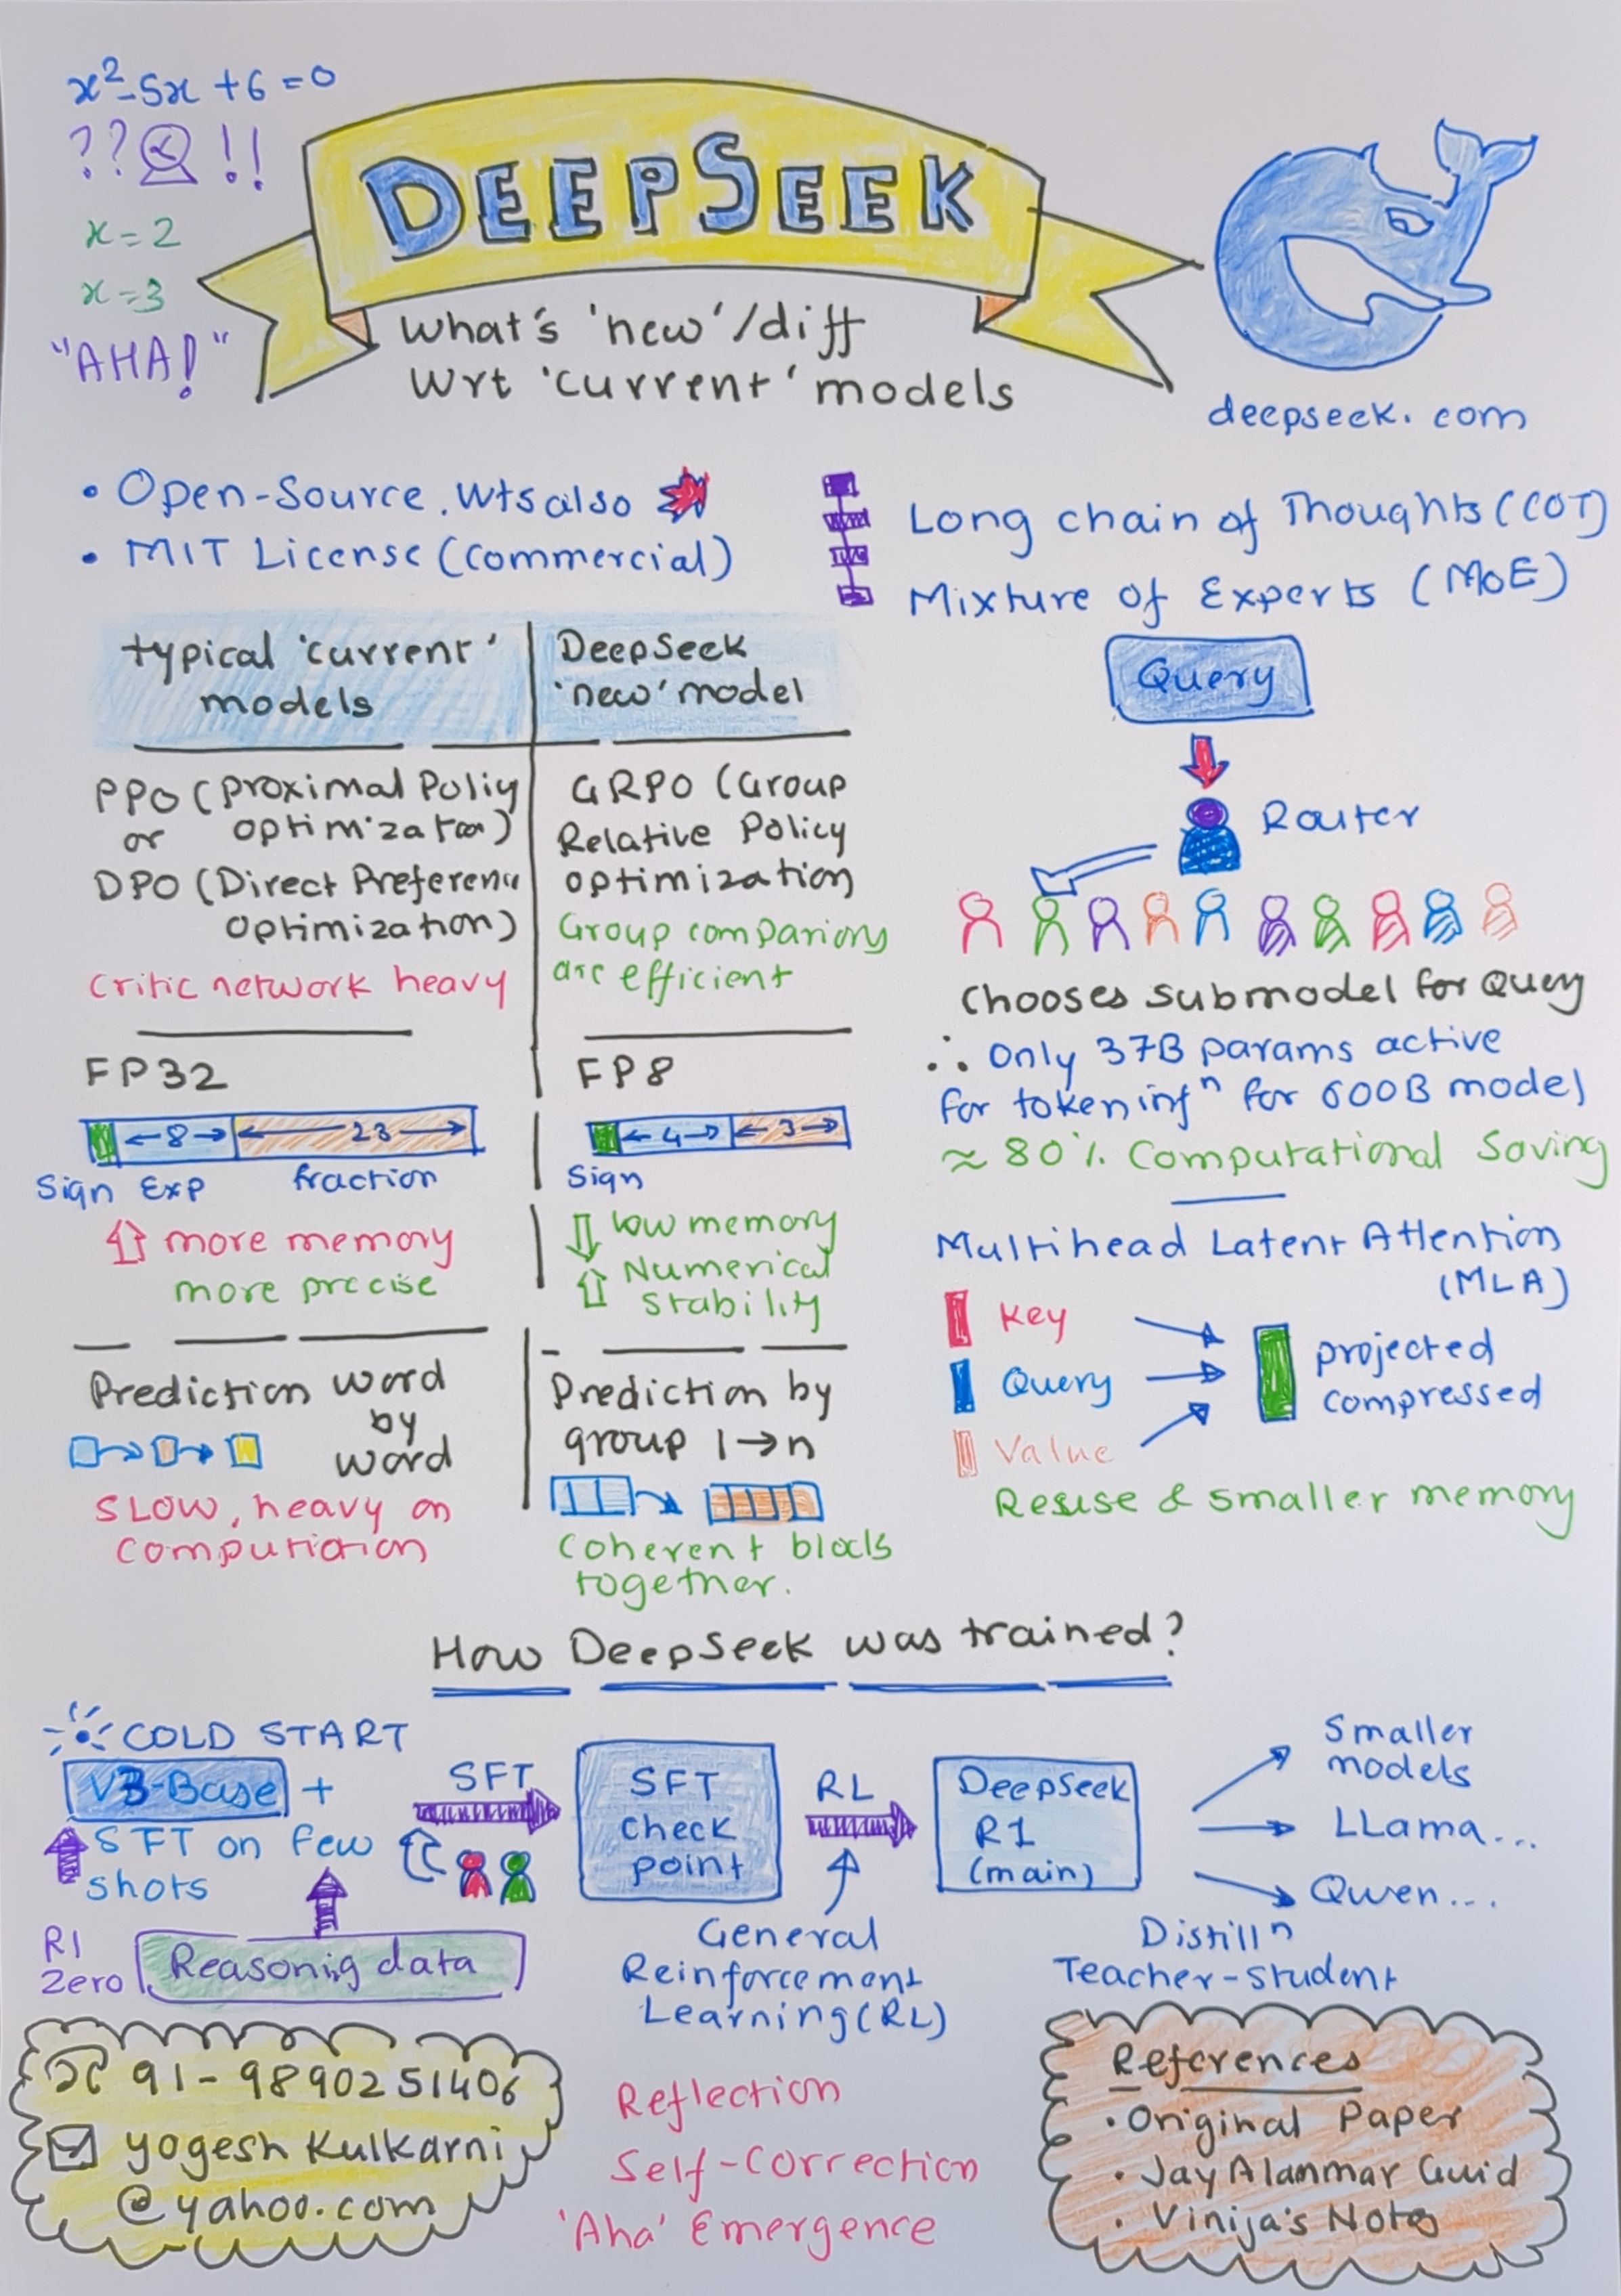 x²-5x+6=0
?? !!
x=2
x=3
"AHA!"
DEEPSEEK
What's 'new'/diff
Wrt 'current' models
deepseek.com
• Open-Source, Wts also
• MIT License (Commercial)
Long chain of Thoughts (COT)
Mixture of Experts (MoE)
typical 'current'
models
DeepSeek
'new' model
PPO (Proximal Poliy
or optimization)
DPO (Direct Preference
Optimization)
Critic network heavy
GRPO (Group
Relative Policy
optimization
Group comparions
are efficient
FP32
8 23
Sign Exp fraction
more memory
more precise
FP8
4 3
Sign
low memory
Numerical
stability
Prediction word
by
word
SLOW, heavy on
Computation
Prediction by
group 1→n
Coherent blocks
together.
Query
Router
Chooses submodel for Query
∴ Only 37B params active
for token infⁿ for 600B model
≈ 80% Computational Saving
Multihead Latent Attention
(MLA)
Key
Query
Value
projected
compressed
Resuse & smaller memory
How DeepSeek was trained?
COLD START
V3-Base +
SFT on few
shots
R1
Zero
Reasonig data
SFT
SFT
check
point
RL
General
Reinforcement
Learning (RL)
DeepSeek
R1
(main)
Smaller
models
LLama...
Qwen...
Distillⁿ
Teacher-Student
91-9890251406
yogesh Kulkarni
@yahoo.com
Reflection
Self-Correction
'Aha' Emergence
References
• Original Paper
• Jay Alammar Guid
• Vinija's Notes